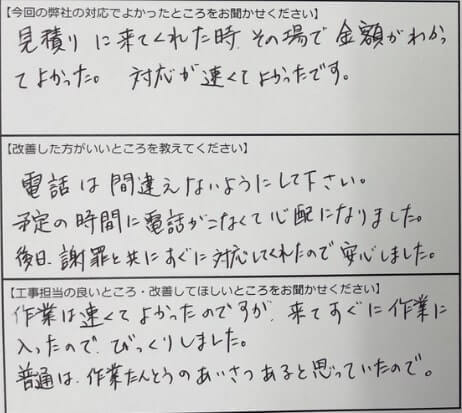 【今回の弊社の対応でよかったところをお聞かせください】
見積りに来てくれた時、その場で金額がわかっ
てよかった。 対応が速くてよかったです。
【改善した方がいいところを教えてください】
電話は間違えないようにして下さい。
予定の時間に電話がこなくて心配になりました。
後日、謝罪と共にすぐに対応してくれたので安心しました。
【工事担当の良いところ・改善してほしいところをお聞かせください】
作業は速くてよかったのですが、来てすぐに作業に
入ったので、びっくりしました。
普通は、作業たんとうのあいさつあると思っていたので。